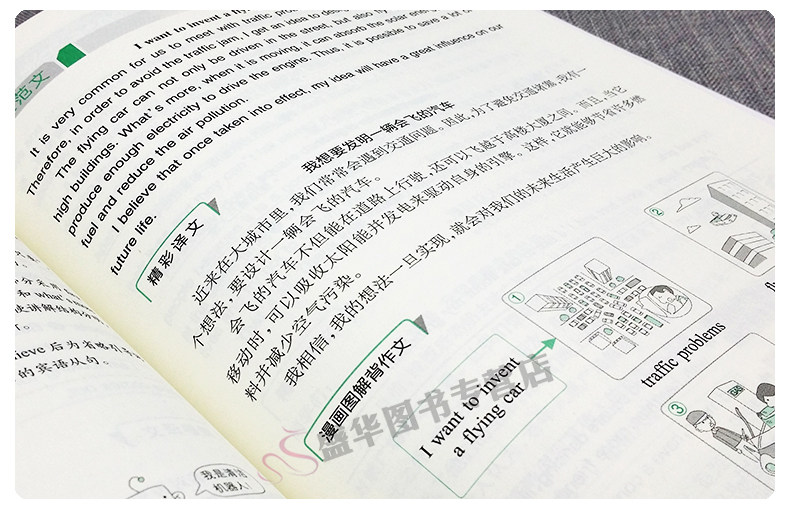 范文
I want to invent a fly
It is very common for us to meet with traffic prob
Therefore, in order to avoid the traffic jam, I get an idea to desig
The flying car can not only be driven in the street, but also fly
high buildings. What's more, when it is moving, it can absorb the solar ener
produce enough electricity to drive the engine. Thus, it is possible to save a lot o
fuel and reduce the air pollution.
I believe that once taken into effect, my idea will have a great influence on our
future life.
精彩译文
我想要发明一辆会飞的汽车
近来在大城市里，我们常常会遇到交通问题。因此，为了避免交通堵塞，我有一
个想法，要设计一辆会飞的汽车。
会飞的汽车不但能在道路上行驶，还可以飞越于高楼大厦之间。而且，当它
移动时，可以吸收太阳能并发电来驱动自身的引擎。这样，它就能够节省许多燃
料并减少空气污染。
我相信，我的想法一旦实现，就会对我们的未来生活产生巨大的影响。
漫画图解背作文
I want to invent
a flying car
①
traffic problems
②
fl
③
GAS
和 what
使讲解结构
了。
ieve 后为省略
的宾语从句。
我是清洁
机器人！
盛华图书专营店